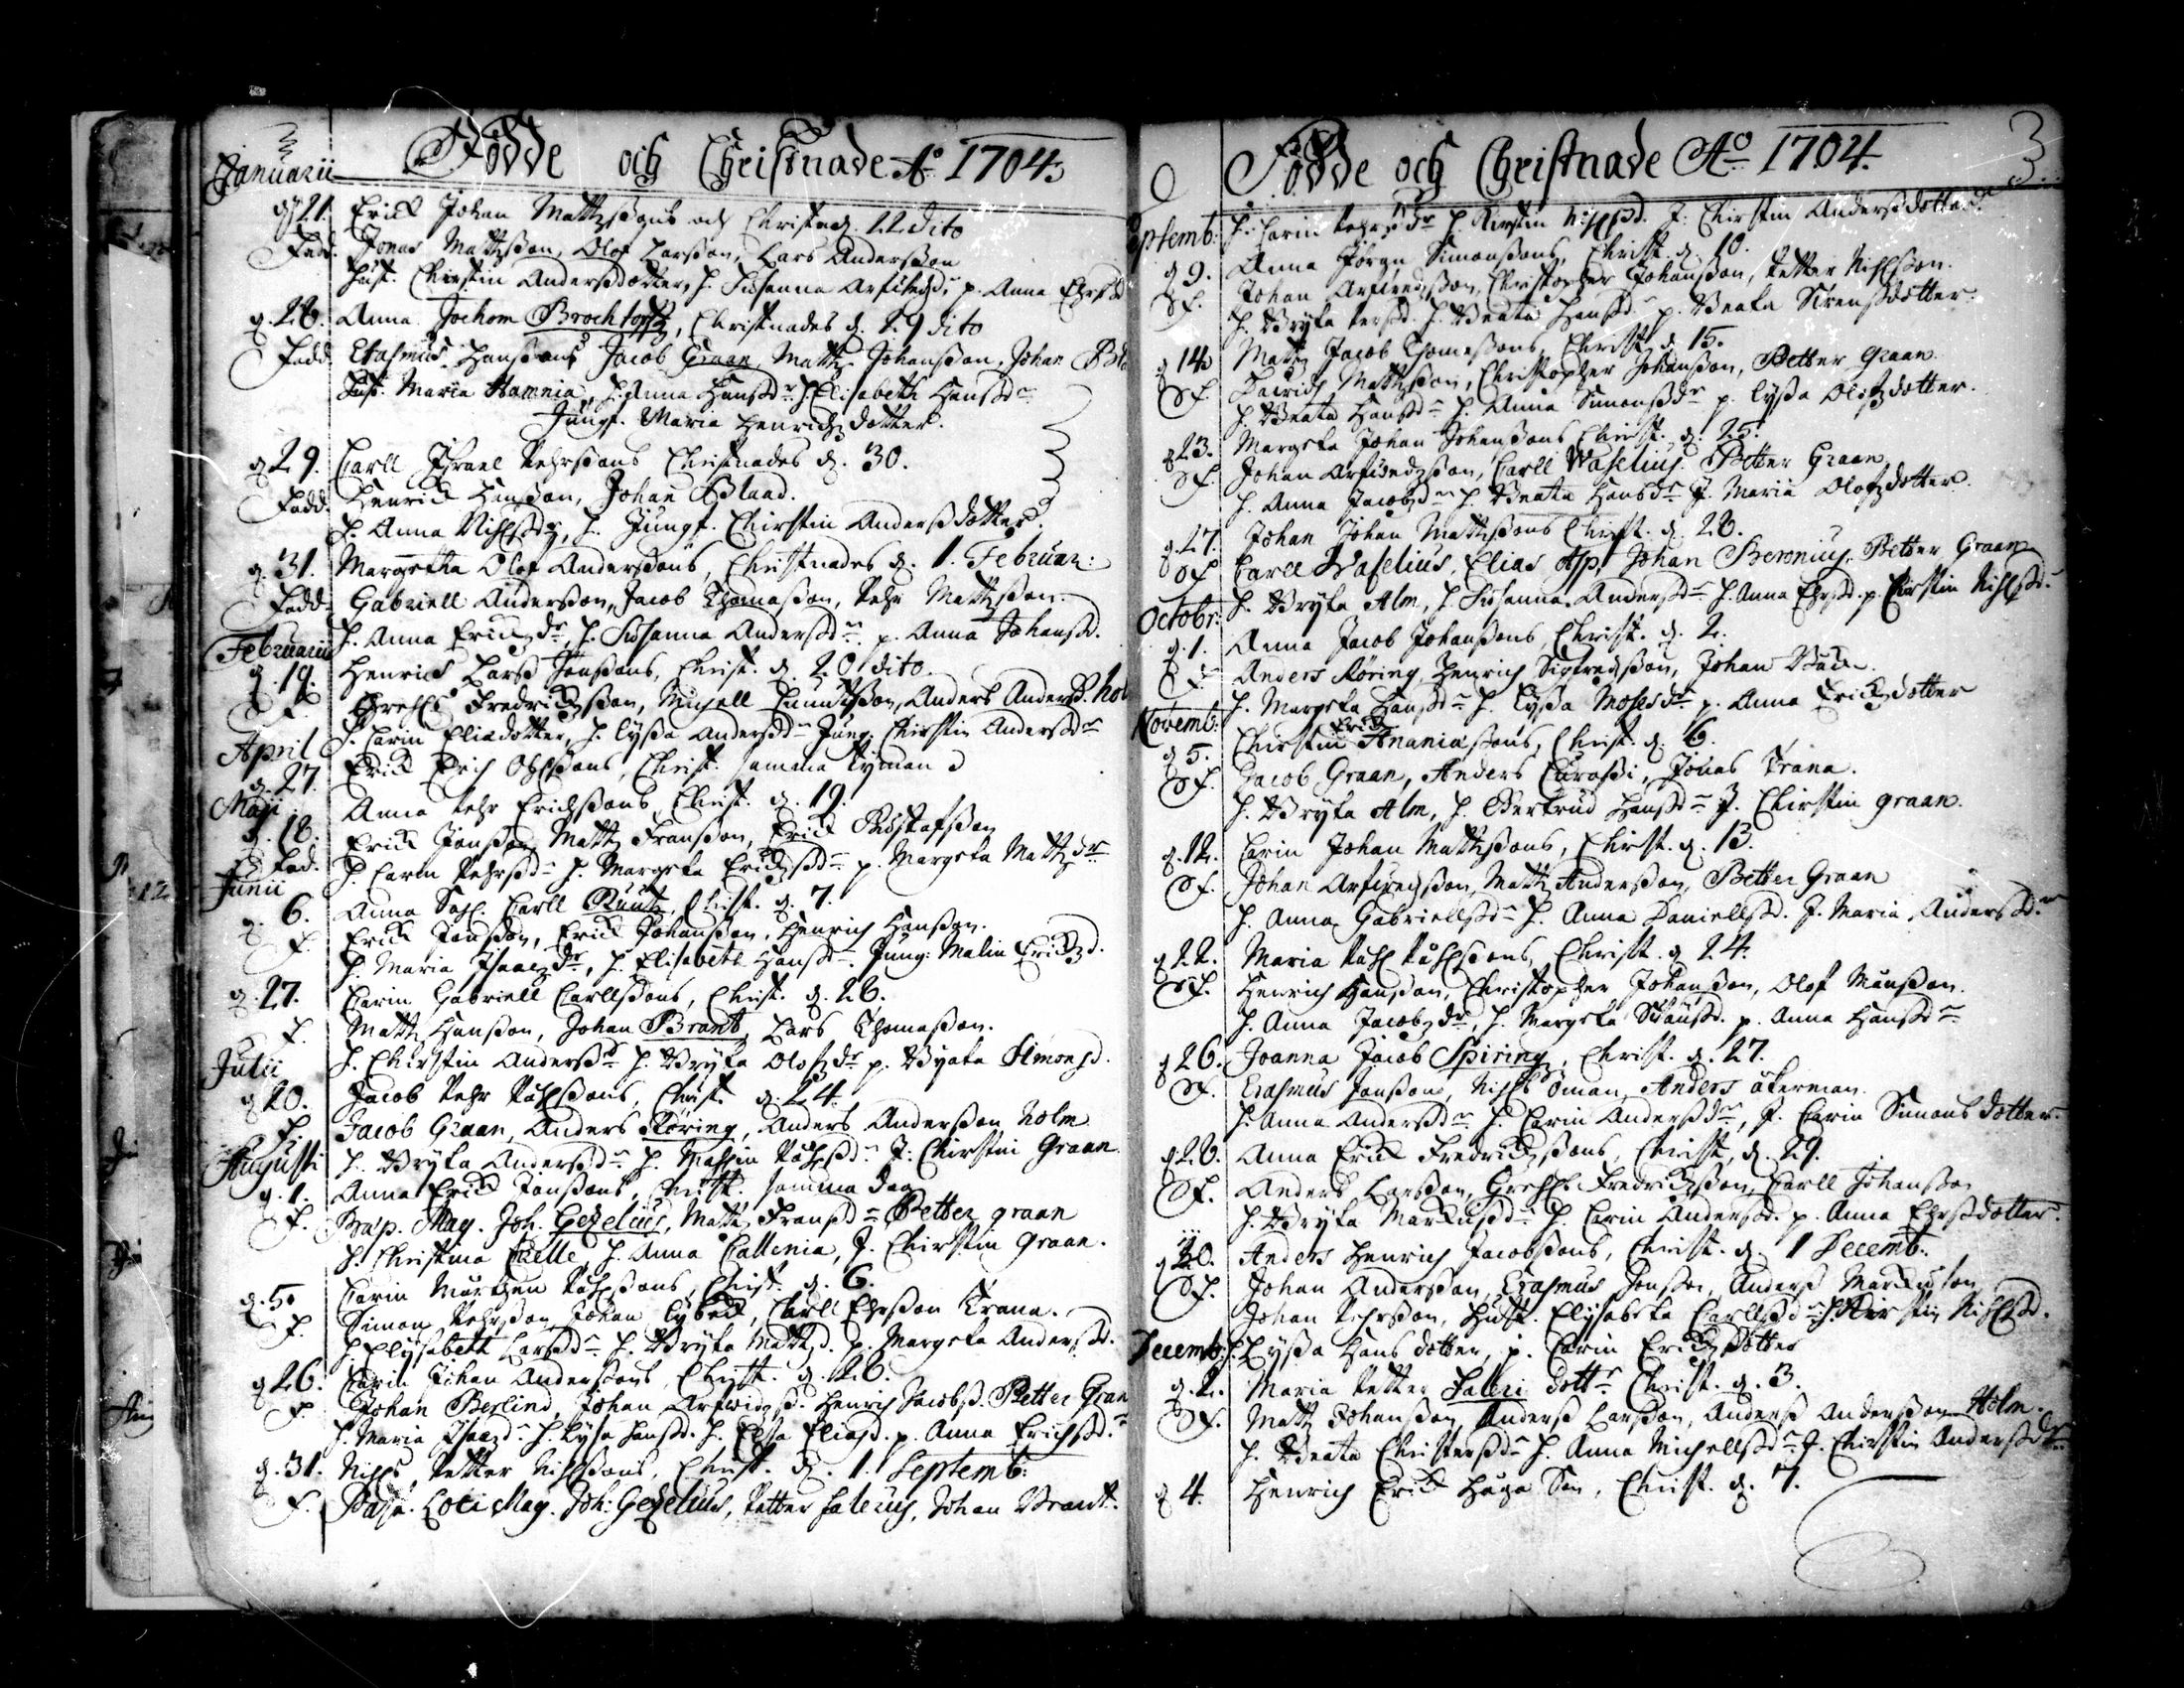 Januarii
Födde och Christnade Aº 1704
d. 21. Erick Johan Mattzsons och Christn. d. 22 dito
Fadd. Jonas Mattzson, Olof Larsson, Lars Andersson
Hust. Chirstin Andersdotter, h. Susanna p. Anna
d. 28. Anna Jochom Brochtorff, Christnades d. 29 dito
Fadd. Erasmus Hansson Jacob Graan, Mattz Johansson, Johan
Hust. Maria Hamnia, h. Anna Hansdr h. Elisabeth Hansdr
Jungf. Maria Henrichzdotter.
d. 29. Carll Israel Pehrssons Christnades d. 30.
Fadd. Henrick Hansson, Johan Blaad.
h. Anna h. Jungf. Chirstin Andersdotter.
d. 31. Margetha Olof Anderssons, Christnades d. 1. Februar:
Fadd. Gabriell Andersson, Jacob Thomasson, Pehr Mattzson.
Februarii h. Anna Erickzdr, h. Susanna Andersdr p. Anna Johansd.
d. 19. Henrick Lars Jonssons, Christ. d. 20 dito
F. Fredrickzson, Michell Anders Anderss.
April h. Carin Eliedotter, h. Lyssa Andersdr Jung. Chirstin Andersdr
d. 27. Erick Erich Christ. samma
Maji Anna Pehr Erichssons Christ. d. 19.
d. 18. Erick Jonsson, Mattz Fransson, Erick Gustafsson
Fad. h. Carin Pehrsdr h. Margeta Erickzdr p. Margeta Mattzdr
Junii
d. 6. Anna Carll Ruutz, Christ. d. 7.
F. Erick Jonsson, Erick Johansson, Henrich Hansson.
h. Maria Isaczdr, h. Elisabeth Hansdr. Jung: Malin Erickzd.
d. 27. Carin Gabriell Carllssons, Christ. d. 28.
F. Mattz Hansson, Johan Brantz, Lars Thomasson.
Julii h. Chirstin Andersdr h. Bryta Olofzdr p. Simonsd.
d. 20. Jacob Pehr Christ. d. 24.
F. Jacob Graan, Anders Röring, Anders Andersson Holm
Augusti h. Bryta Andersdr h. J. Chirstin Graan
d. 1. Anna Erick Jonssons, Christ. samma dag
F. Mag. Joh. Gezelius, Mattz Petter graan
h. Christina h. Anna Callenia, J. Chirstin Graan.
d. 5. Carin Christ. d. 6.
F. Simon Pehrsson, Johan Lybeck, Carll Ehrsson Trana.
h. Elysabett Larsdr h. Bryta Mattzd. p. Margeta Andersd.
d. 26. Carin Johan Anderssons, Christ. d. 28.
F. Johan Berlind, Johan Arfwidzs. Henrich Jacobs. Petter Gran
h. Maria Isaczd: h. Lysa Hansd. h. Elsa Eliasd. p. Anna Erichsdr
d. 31. Nills Petter Nillssons, Christ. d. 1. Septemb:
F. Past. Loci Mag. Joh: Gezelius, Petter Salerius, Johan Brandt.
Födde och Christnade Aº 1704. 3.
Septemb: h. Carin Pehrsdr h. Kirstin Nillsd. J: Chirstin Andersdotter
d 9. Anna Jörgn Simonssons, Christ. d. 10.
F. Johan Arfwedzson, Christopher Johansson, Petter Nillsson.
h. Bryta h. Beata Hansdr p. Beata Sörensdotter.
d 14. Mattz Jacob Thomassons, Christ. d 15.
F. Hinrich Mattzson, Christopher Johansson, Petter Graan.
h. Beata Hansdr h. Anna Simonsdr p. Lyssa Olofzdotter.
d 23. Margeta Johan Johanssons Christ. d. 25.
F. Johan Arfwedzson, Carll Waselius Petter Graan
h. Anna Jacobzdr h. Beata Hansdr J. Maria Olofzdotter.
d. 27. Johan Johan Mattzsons Christ. d. 28.
F Carll Waselius, Elias Asp, Johan Beronius, Petter Graan
Octobr: h. Bryta Alm, h. Susanna Andersdr h. Anna Ehrsd. p. Chirstin Nillsd.
d. 1. Anna Jacob Johanssons Christ. d. 2.
F. Anders Röring, Henrich Sigfredsson, Johan
Novemb: h. Margeta Hansdr h. Lyssa Mosesdr p. Anna Erickzdotter
d 5. Chirstin Erich Ananiæssons, Christ. d. 6.
F. Jacob Graan, Anders Jonas Trana.
h. Bryta Alm, h. Gertrud Hansdr J. Chirstin graan.
d. 12. Carin Johan Mattzsons, Christ. d. 13.
F. Johan Arfwedsson, Mattz Andersson, Petter Graan
h. Anna Gabriellsdr h. Anna Daniellsd. J. Maria Andersdr
d. 22. Maria Christ. d 24.
F. Henrich Hansson, Christopher Johansson, Olof Månsson.
h. Anna Jacobzdr, h. Margeta p. Anna Hansdr
d 26. Joanna Jacob Spiring, Christ. d. 27.
F. Erasmus Jonssons, Nills Öman, Anders Åkerman.
h. Anna Andersdr h. Carin Andersdr, p. Carin Simonsdotter.
d 28. Anna Erick Fredrickzsons, Christ. d. 29.
F. Anders Larsson, Fredrickzson, Carll Johansson
h. Bryta Markusdr h. Carin Andersd. p. Anna Ehrsdotter.
d 30. Anders Henrich Jacobssons, Christ. d. 1 Decemb:
F. Johan Andersson, Erasmus Jonsson, Anders Markusson
Johan Pehrsson, Hust. Elysabeta Carllsdr h. Kirstin Nillsd.
Decemb: h. Lyssa Hansdotter, p. Carin Erickzdotter
d. 2. Maria Petter Saleri dottr Christ. d. 3.
F. Mattz Johansson, Anders Larsson, Anders Andersson Holm.
h. Beata Christersdr h. Anna Michellsdr J. Chirstin Andersdr
d 4. Henrich Erick Haga Son, Christ. d. 7.